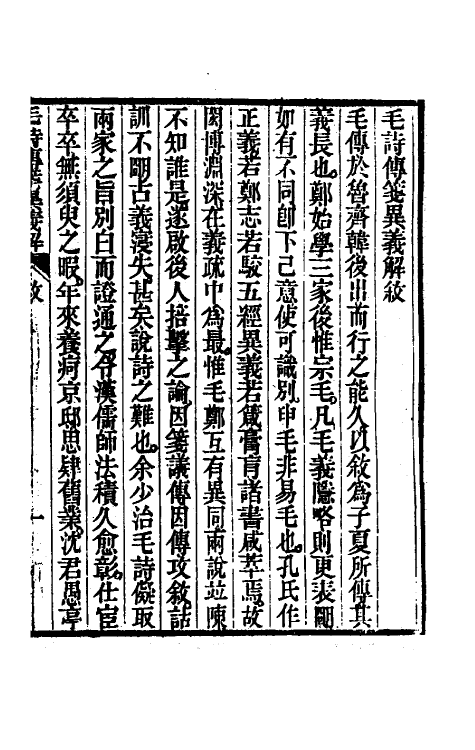 毛詩傳箋異義解敘
毛傳於魯齊韓後出而行之能久以敘爲子夏所傳其
義長也鄭始學三家後惟宗毛凡毛義隱略則更表明
如有不同卽下己意使可識別申毛非易毛也孔氏作
正義若鄭志若駁五經異義若箴膏肓諸書咸萃焉故
閎博淵深在義疏中爲最惟毛鄭互有異同兩說竝陳
不知誰是遂啟後人掊擊之論因箋議傳因傳攻敘詁
訓不明古義寖失甚矣說詩之難也余少治毛詩儗取
兩家之旨別白而證通之令漢儒師法積久愈彰仕宦
卒卒無須臾之暇年來養疴京邸思肄舊業沈君愚亭
毛詩傳箋異義解 敘 一